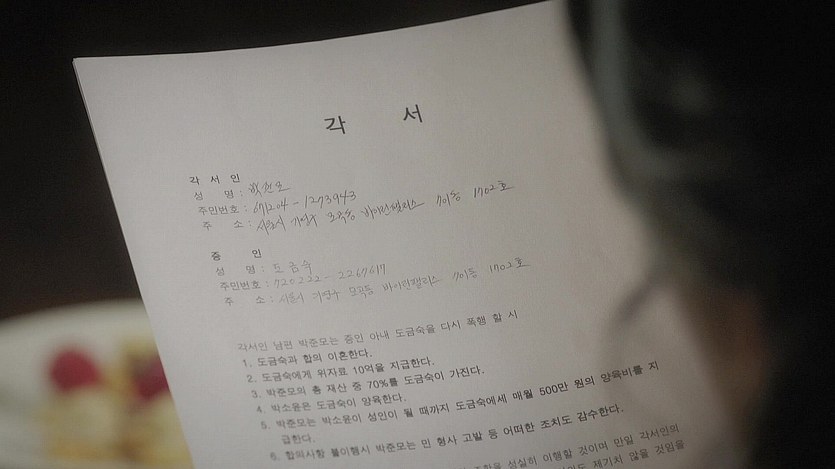 각 서
각 서 인
성 명 : 박준모
주민번호 : 671204 - 1273943
주 소 : 서울시 가연구 모곡동 바이린팰리스 701동 1702호
증 인
성 명 : 도금숙
주민번호 : 720222 - 2267617
주 소 : 서울시 가연구 모곡동 바이린팰리스 701동 1702호
각서인 남편 박준모는 증인 아내 도금숙을 다시 폭행 할 시
1. 도금숙과 합의 이혼한다.
2. 도금숙에게 위자료 10억을 지급한다.
3. 박준모의 총 재산 중 70%를 도금숙이 가진다.
4. 박소윤은 도금숙이 양육한다.
5. 박준모는 박소윤이 성인이 될 때까지 도금숙에세 매월 500만 원의 양육비를 지
급한다.
6. 합의사항 불이행시 박준모는 민 형사 고발 등 어떠한 조치도 감수한다.
조항을 성실히 이행할 것이며 만일 각서인의
제기치 않을 것임을